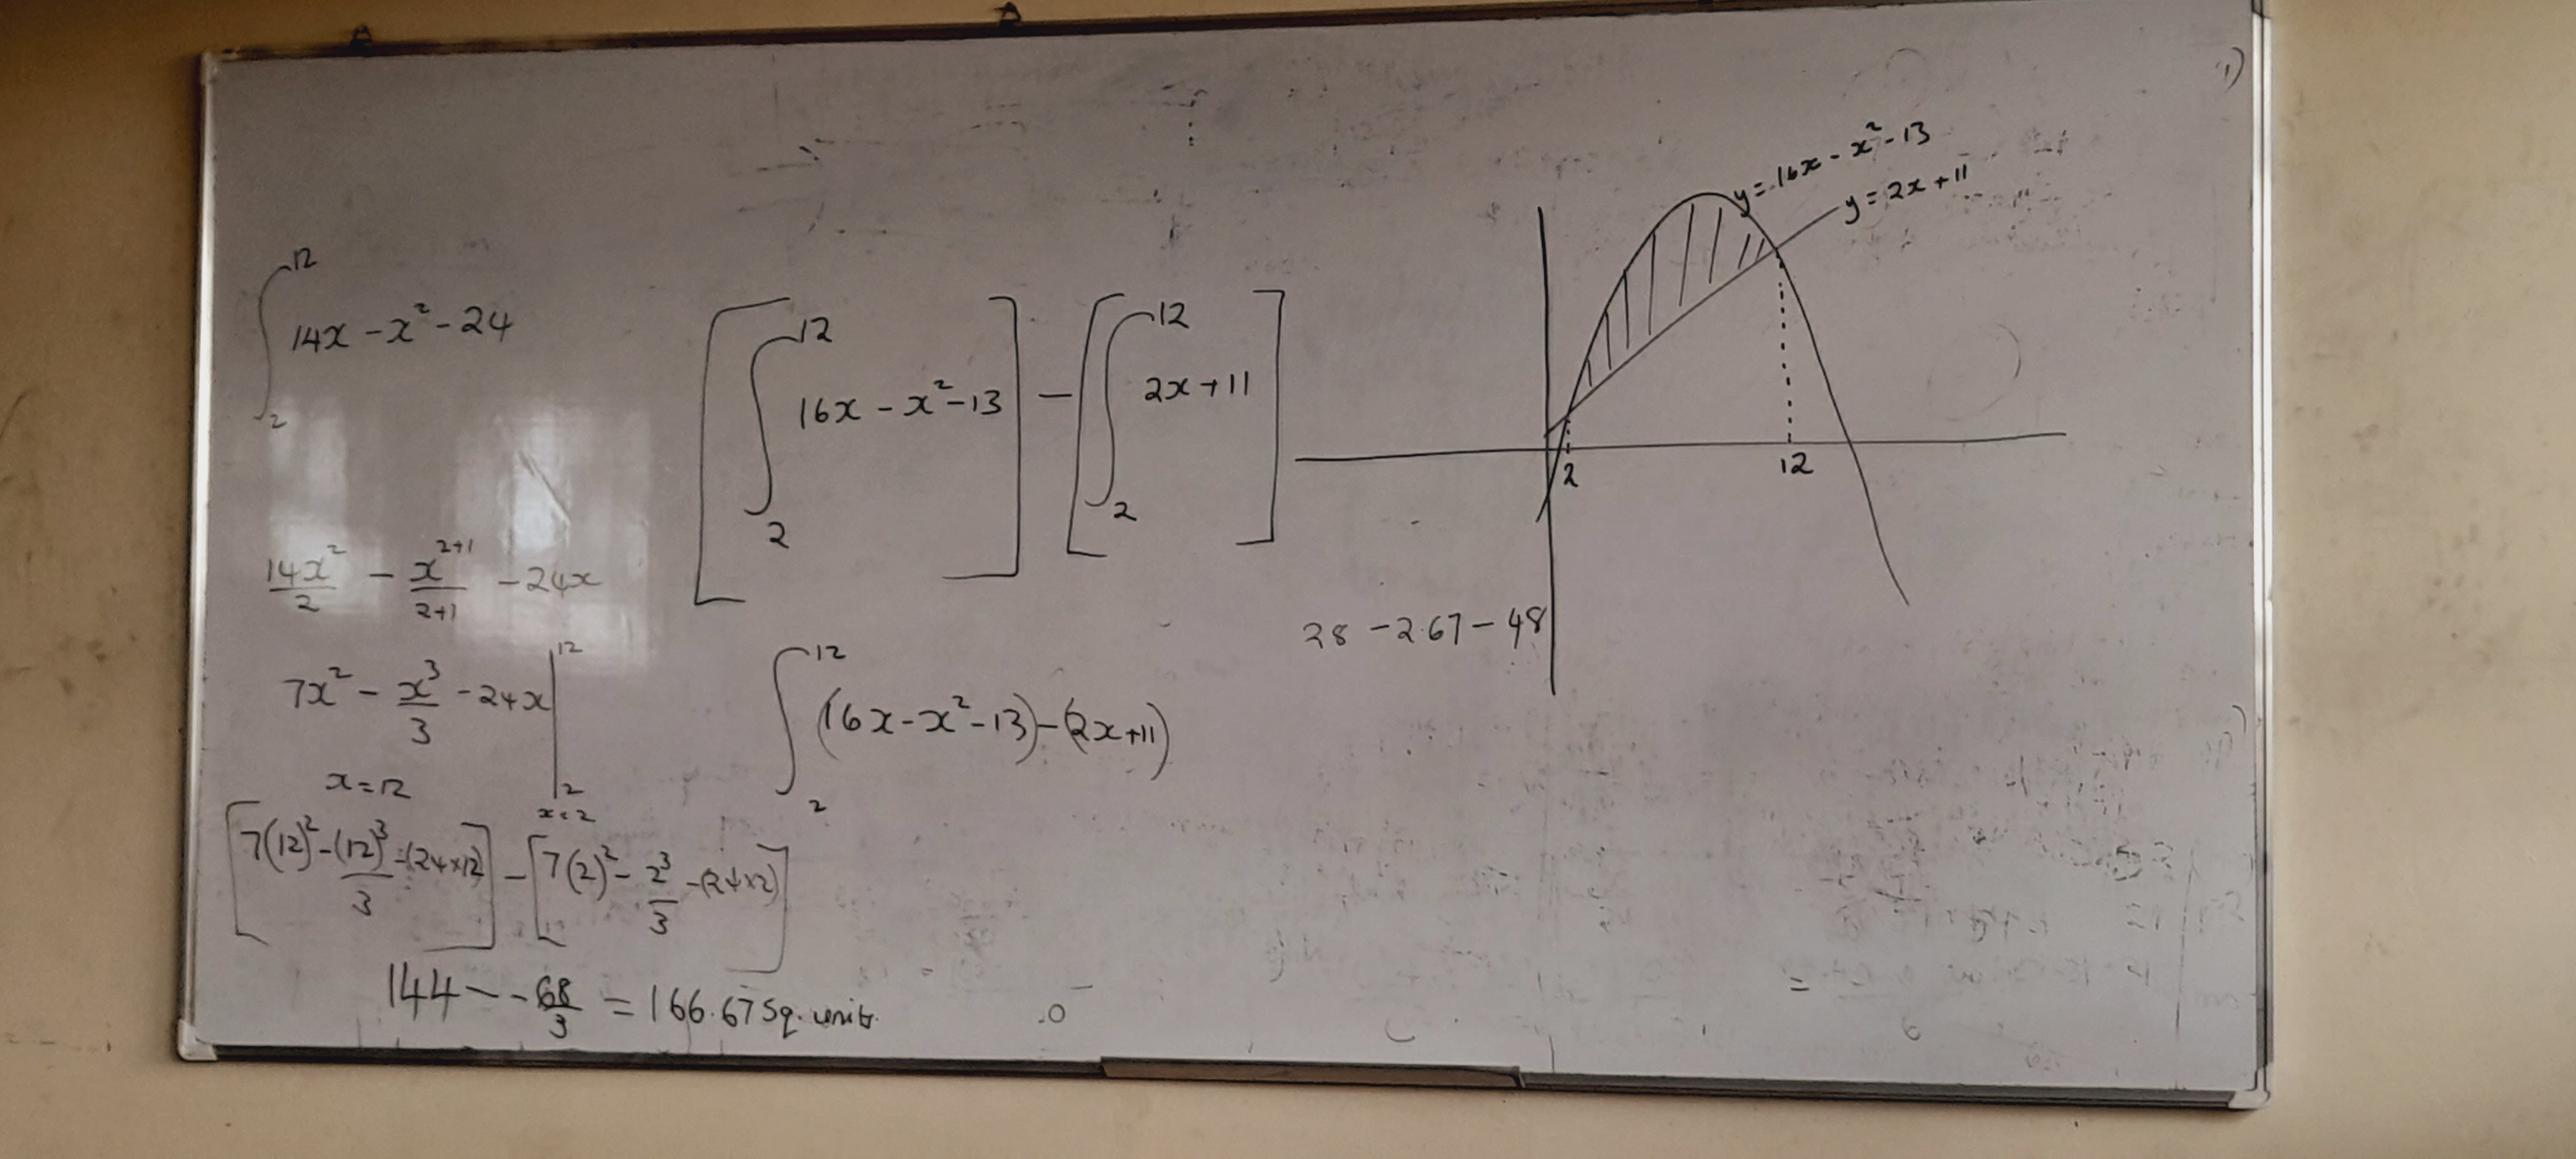 ∫₂¹² 14x - x² - 24
14x²/2 - x²⁺¹/2+1 - 24x
7x² - x³/3 - 24x |₂¹²
x = 12
x = 2
[7(12)² - (12)³/3 - (24×12)] - [7(2)² - 2³/3 - (24×2)]
144 - -68/3 = 166.67 Sq. units.
[∫₂¹² 16x - x² - 13] - [∫₂¹² 2x + 11]
∫₂¹² (16x - x² - 13) - (2x + 11)
y = 16x - x² - 13
y = 2x + 11
2
12
28 - 2.67 - 48